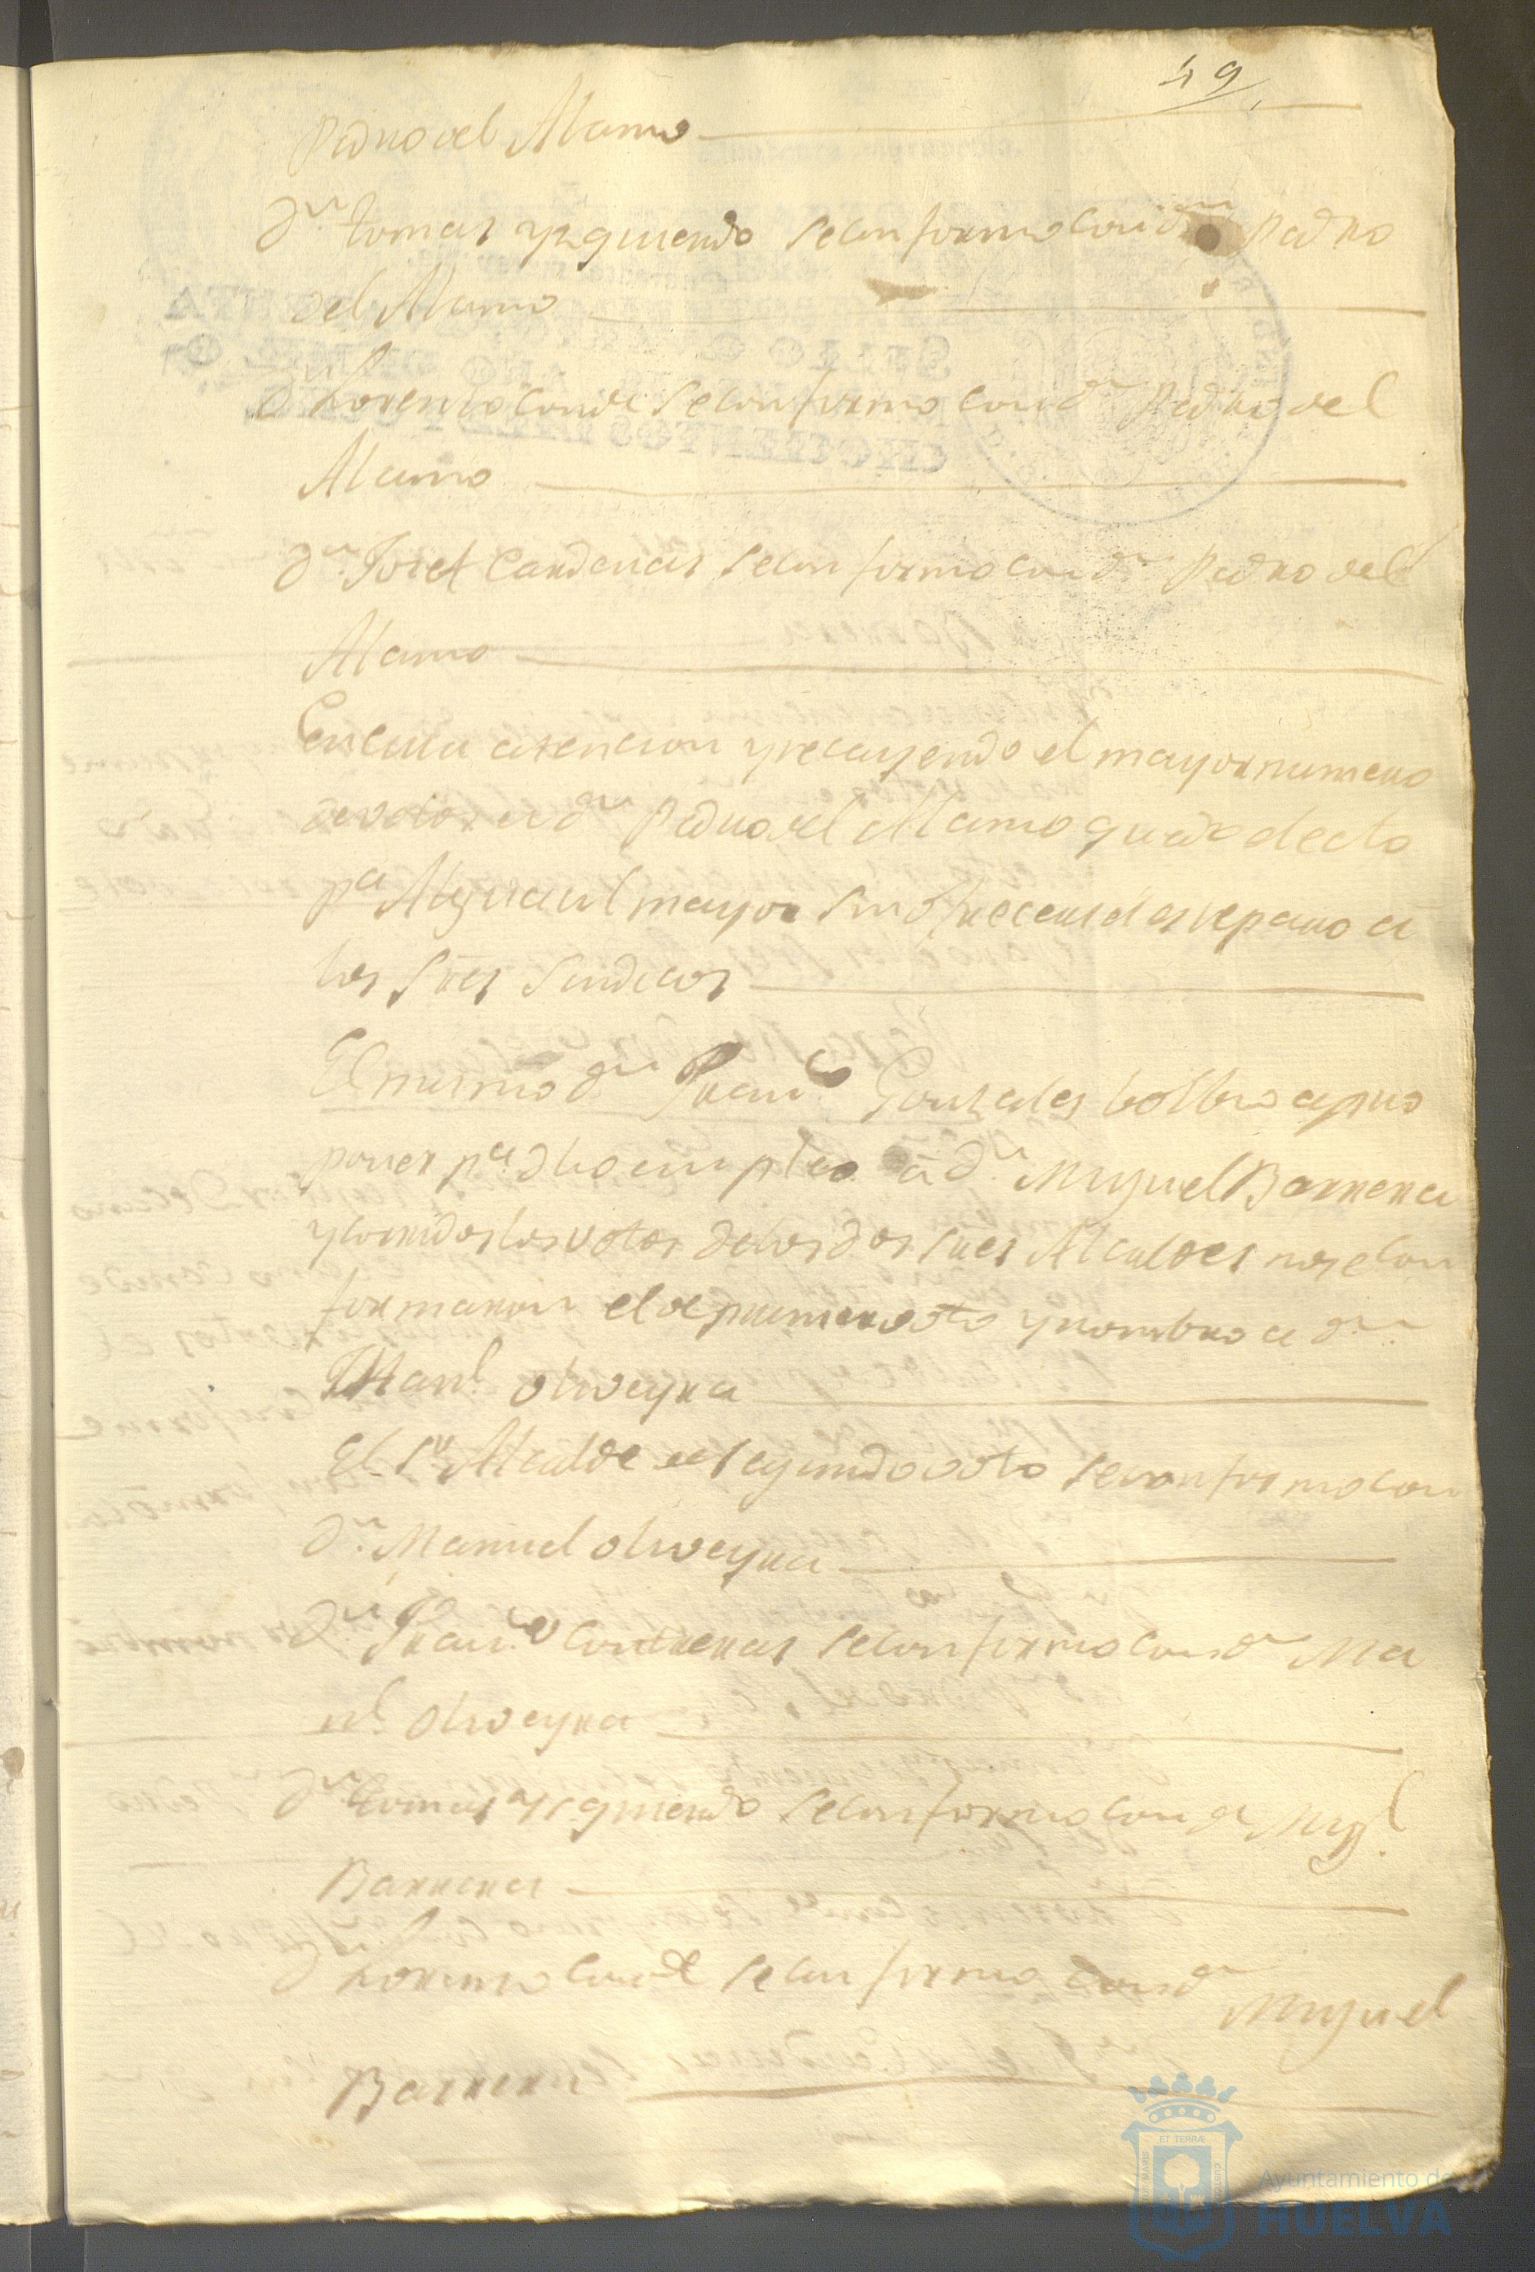 49
Pedro del Alamo
Dn. tomas yzquierdo se conformo con dn Pedro
del Alamo
Dn Lorenzo Conde se conformo con dn Pedro del
Alamo
Dn. Josef Cardenas se conformo con dn Pedro del
Alamo
En cuia atencion y recayendo el mayor numero
de votos en dn Pedro del Alamo quedo electo
pa Alguacil mayor sin ofrecerseles reparo a
los Sres Sindicos
El mismo dn Franco Gonzales bolbio a pro
poner pa. dho empleo a dn. Miguel Barrera
y corridos los votos de los dos Sres Alcaldes no se con
formaron el de primer voto y nombro a dn
Manl. oliveyra
El Sr Alcalde de segundo voto se conformo con
Dn. Manuel oliveyra
Dn Franco Contreras se conformo con dn Ma
nl. oliveyra
Dn tomas yzquierdo se conformo con dn Migl.
Barrera
Dn Lorenzo Conde se conformo con dn
Miguel
Barrera
Ayuntamiento de
HUELVA